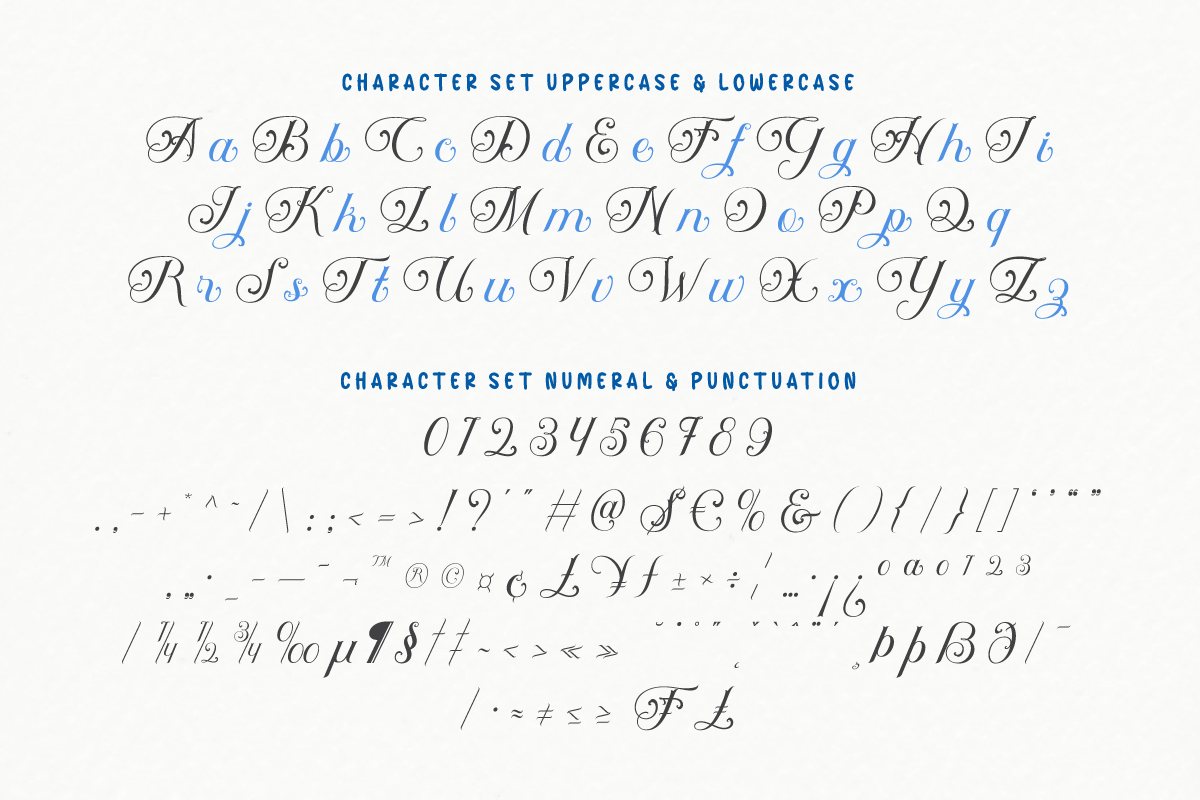 CHARACTER SET UPPERCASE & LOWERCASE
A a B b C c D d E e F f G g H h I i
J j K k L l M m N n O o P p Q q
R r S s T t U u V v W w X x Y y Z z
CHARACTER SET NUMERAL & PUNCTUATION
0 1 2 3 4 5 6 7 8 9
. , - + * ^ ~ / \ : ; < = > ! ? ' " # @ $ € % & ( ) { | } [ ] ‘ ’ “ ”
‚ „ · _ – — ¯ ¬ ™ ® © ¤ ¢ £ ¥ ƒ ± × ÷ ¦ … · ¡ ¿ º ª º 1 2 3
/ ¼ ½ ¾ ‰ µ ¶ § † ‡ ~ < > « » þ þ ß ð / ¯
/ · ≈ ≠ ≤ ≥ ₣ ₤